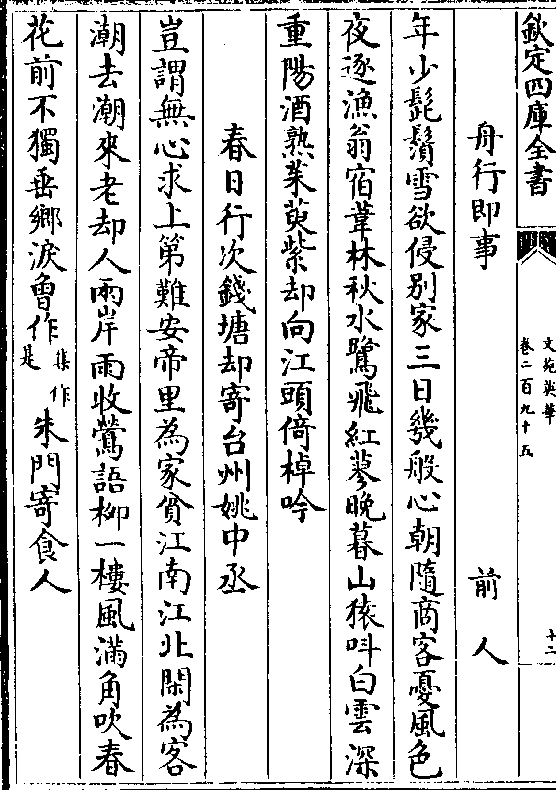 欽定四庫全書
文苑英華
卷二百九十五
十二
舟行即事 前人
年少髭鬚雪欲侵别家三日幾般心朝隨商客憂風色
夜逐漁翁宿葦林秋水鷺飛紅蓼晚暮山猿呌白雲深
重陽酒熟茱萸紫却向江頭倚棹吟
春日行次錢塘却寄台州姚中丞
豈謂無心求上第難安帝里為家貧江南江北閒為客
潮去潮來老却人兩岸雨收鶯語柳一樓風滿角吹春
花前不獨垂鄉淚曾作集作是朱門寄食人